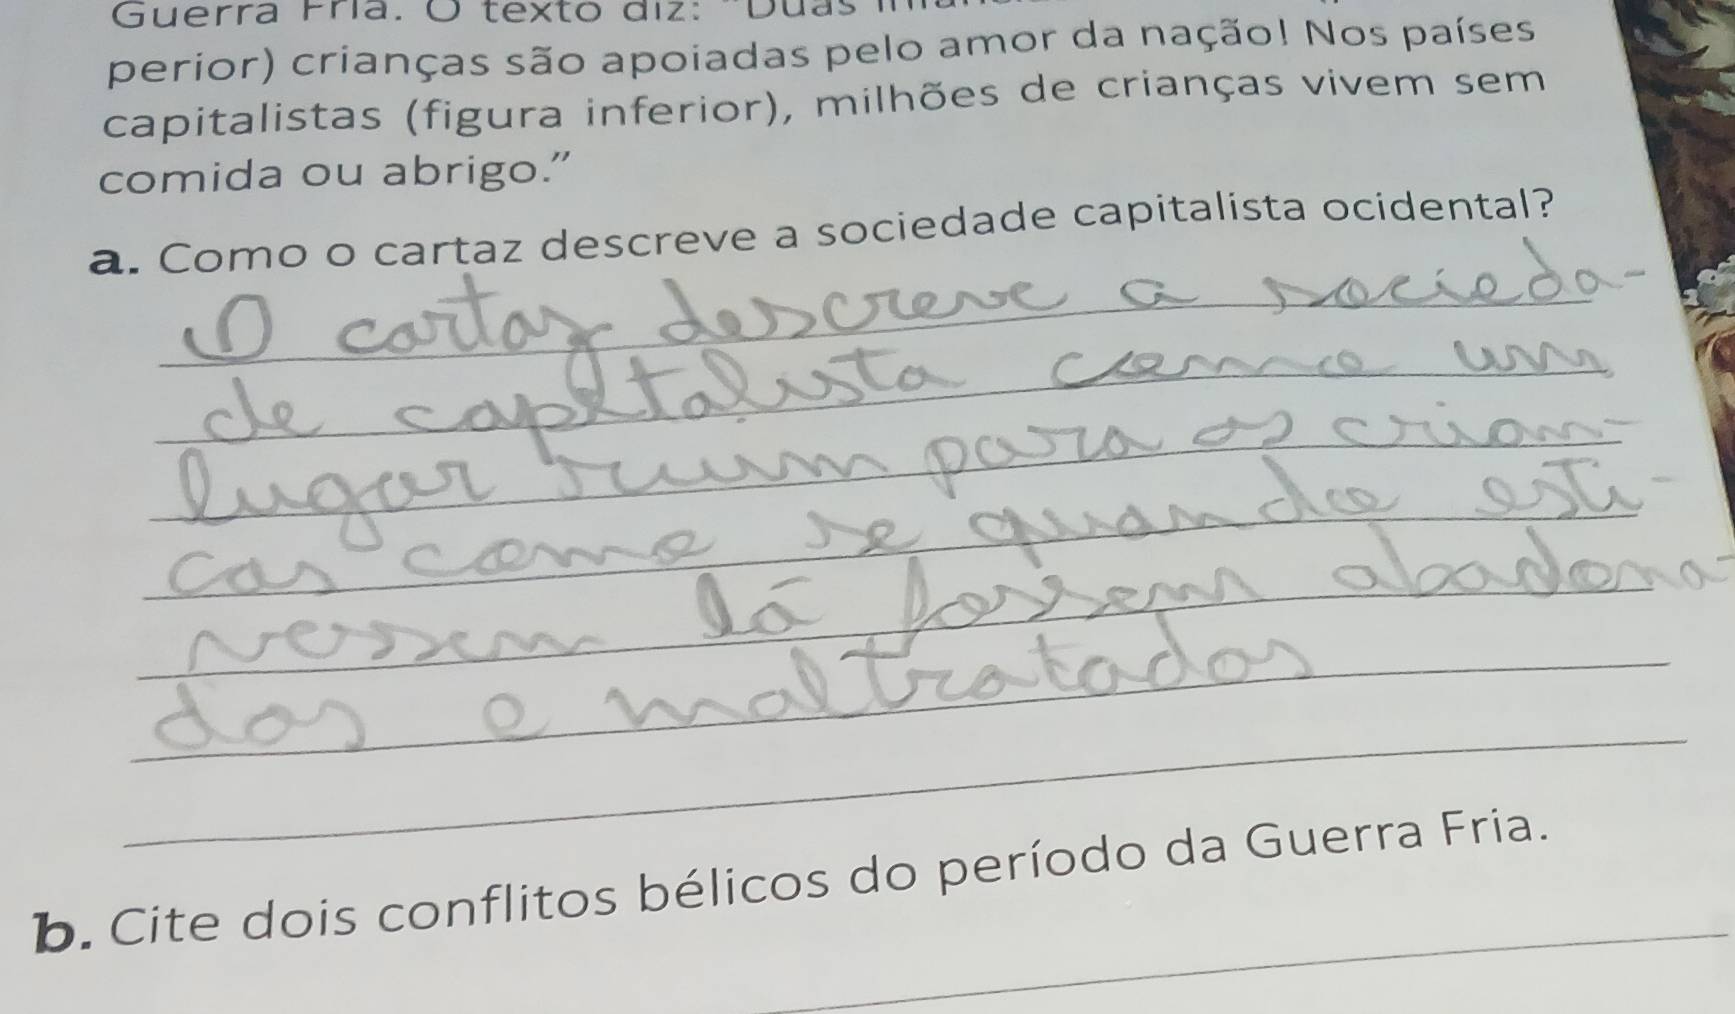 Guerra Fria. O texto diz: "Duas
perior) crianças são apoiadas pelo amor da nação! Nos países
capitalistas (figura inferior), milhões de crianças vivem sem
comida ou abrigo."
a. Como o cartaz descreve a sociedade capitalista ocidental?
O cartaz descreve a socieda-
de capitalista como um
lugar ruim para as crian-
cas como se quando esti-
vessem lá fossem abadona-
dos e maltratados
b. Cite dois conflitos bélicos do período da Guerra Fria.